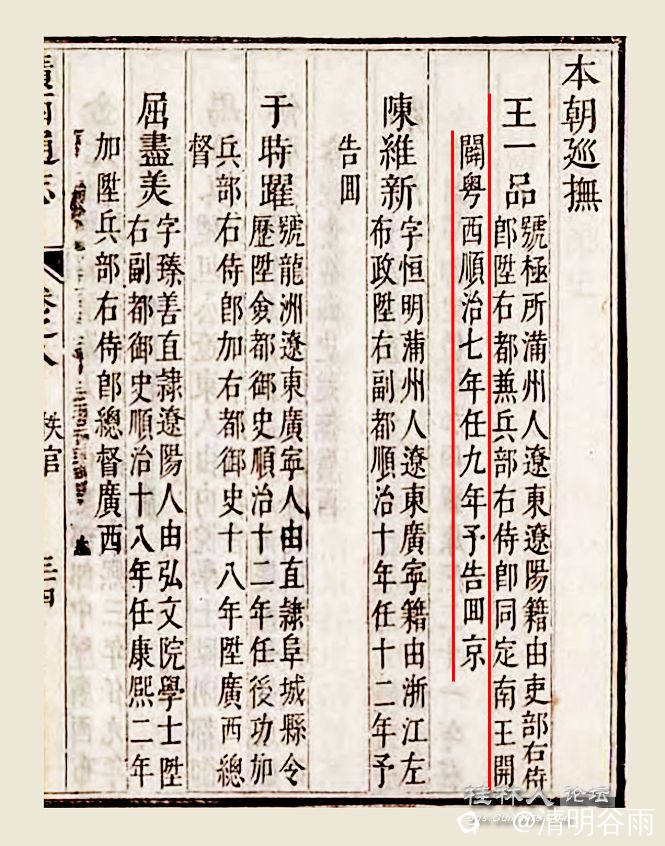 本朝廵撫
王一品
號極所滿州人遼東遼陽籍由吏部右侍
郎陞右都兼兵部右侍郎同定南王開
闢粤西順治七年任九年予告囬京
陳維新
字恒明蒲州人遼東廣寧籍由浙江左
布政陞右副都順治十年任十二年予
告囬
于時躍
號龍洲遼東廣寧人由直隷阜城縣令
歷陞僉都御史順治十二年任後功加
兵部右侍郎加右都御史十八年陞廣西總
督
屈盡美
字臻善直隷遼陽人由弘文院學士陞
右副都御史順治十八年任康熈二年
加陞兵部右侍郎總督廣西
廣西通志
卷之八
秩官
桂林人论坛
@清明谷雨